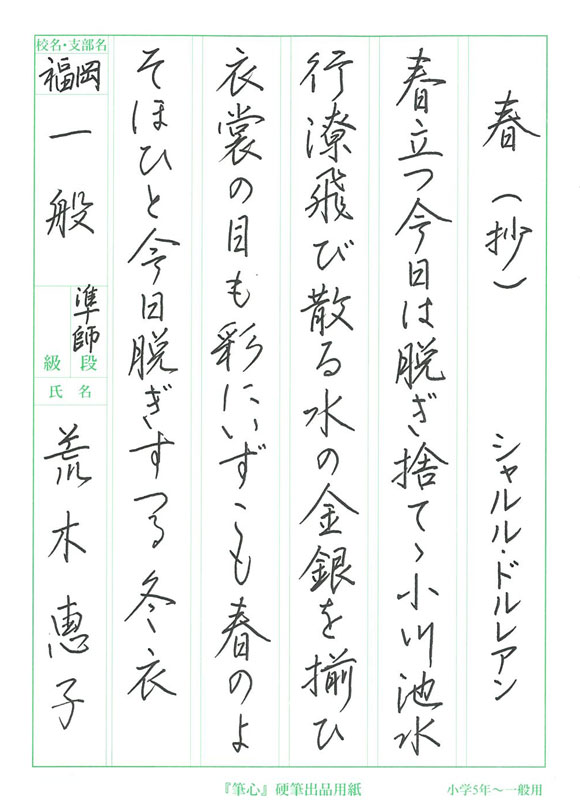 春(抄) シャルル・ドルレアン
春立つ今日は脱ぎ捨てゝ小川池水
行潦飛び散る水の金銀を揃ひ
衣裳の目も彩にいずこも春のよ
そほひと今日脱ぎすつる冬衣
校名・支部名
福岡
一般
準師
級 段
氏名
荒木惠子
『筆心』硬筆出品用紙
小学5年〜一般用